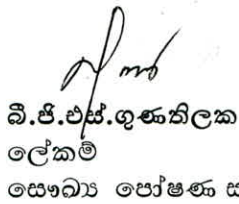 බී.ජී.එස්.ගුණතිලක
ලේකම්
සෞඛ්‍ය පෝෂණ ස